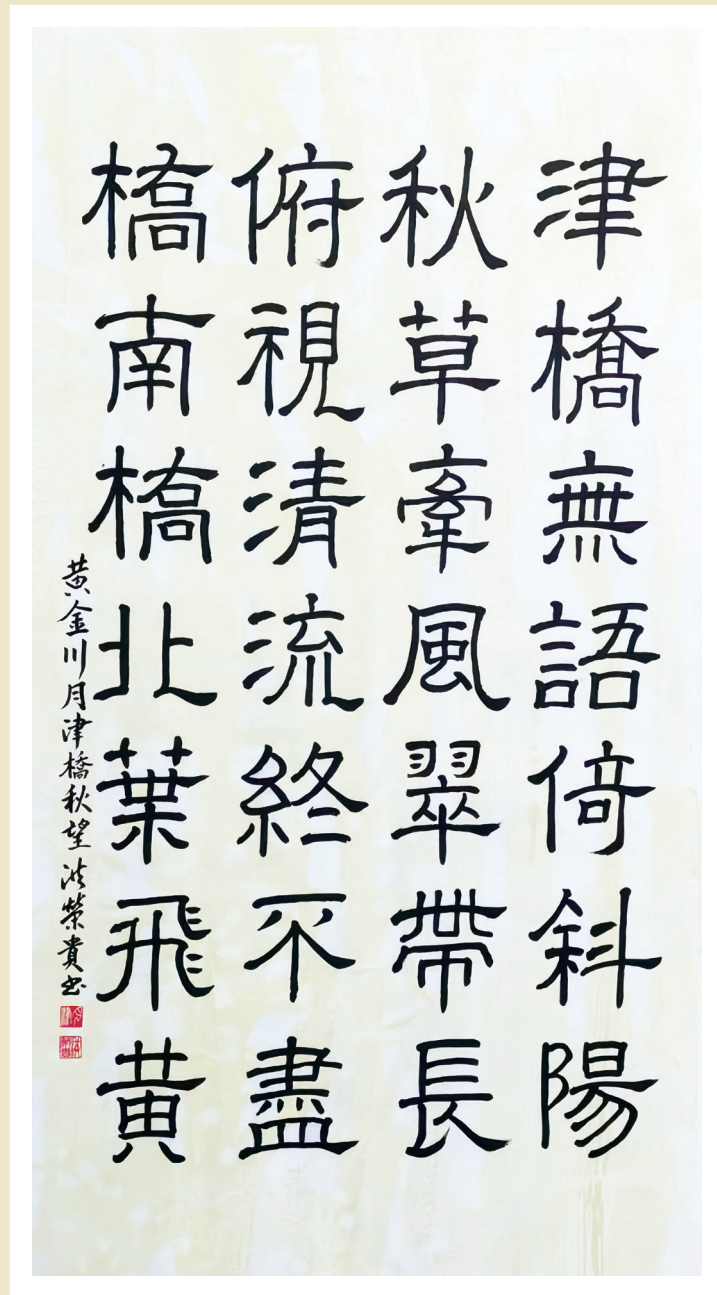 津橋無語倚斜陽
秋草牽風翠帶長
俯視清流終不盡
橋南橋北葉飛黃
黃金川月津橋秋望 洪榮貴書